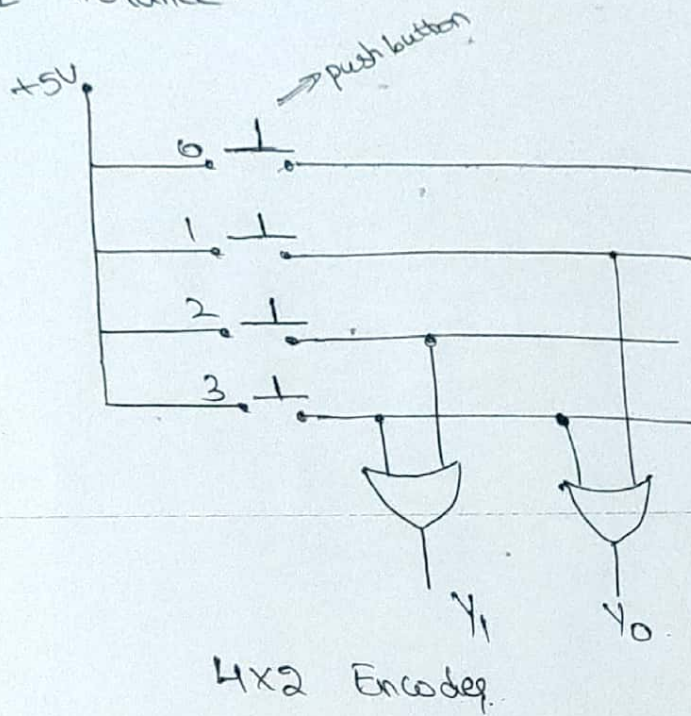 push button
+5V
0
1
2
3
Y1
Y0
4x2 Encoder